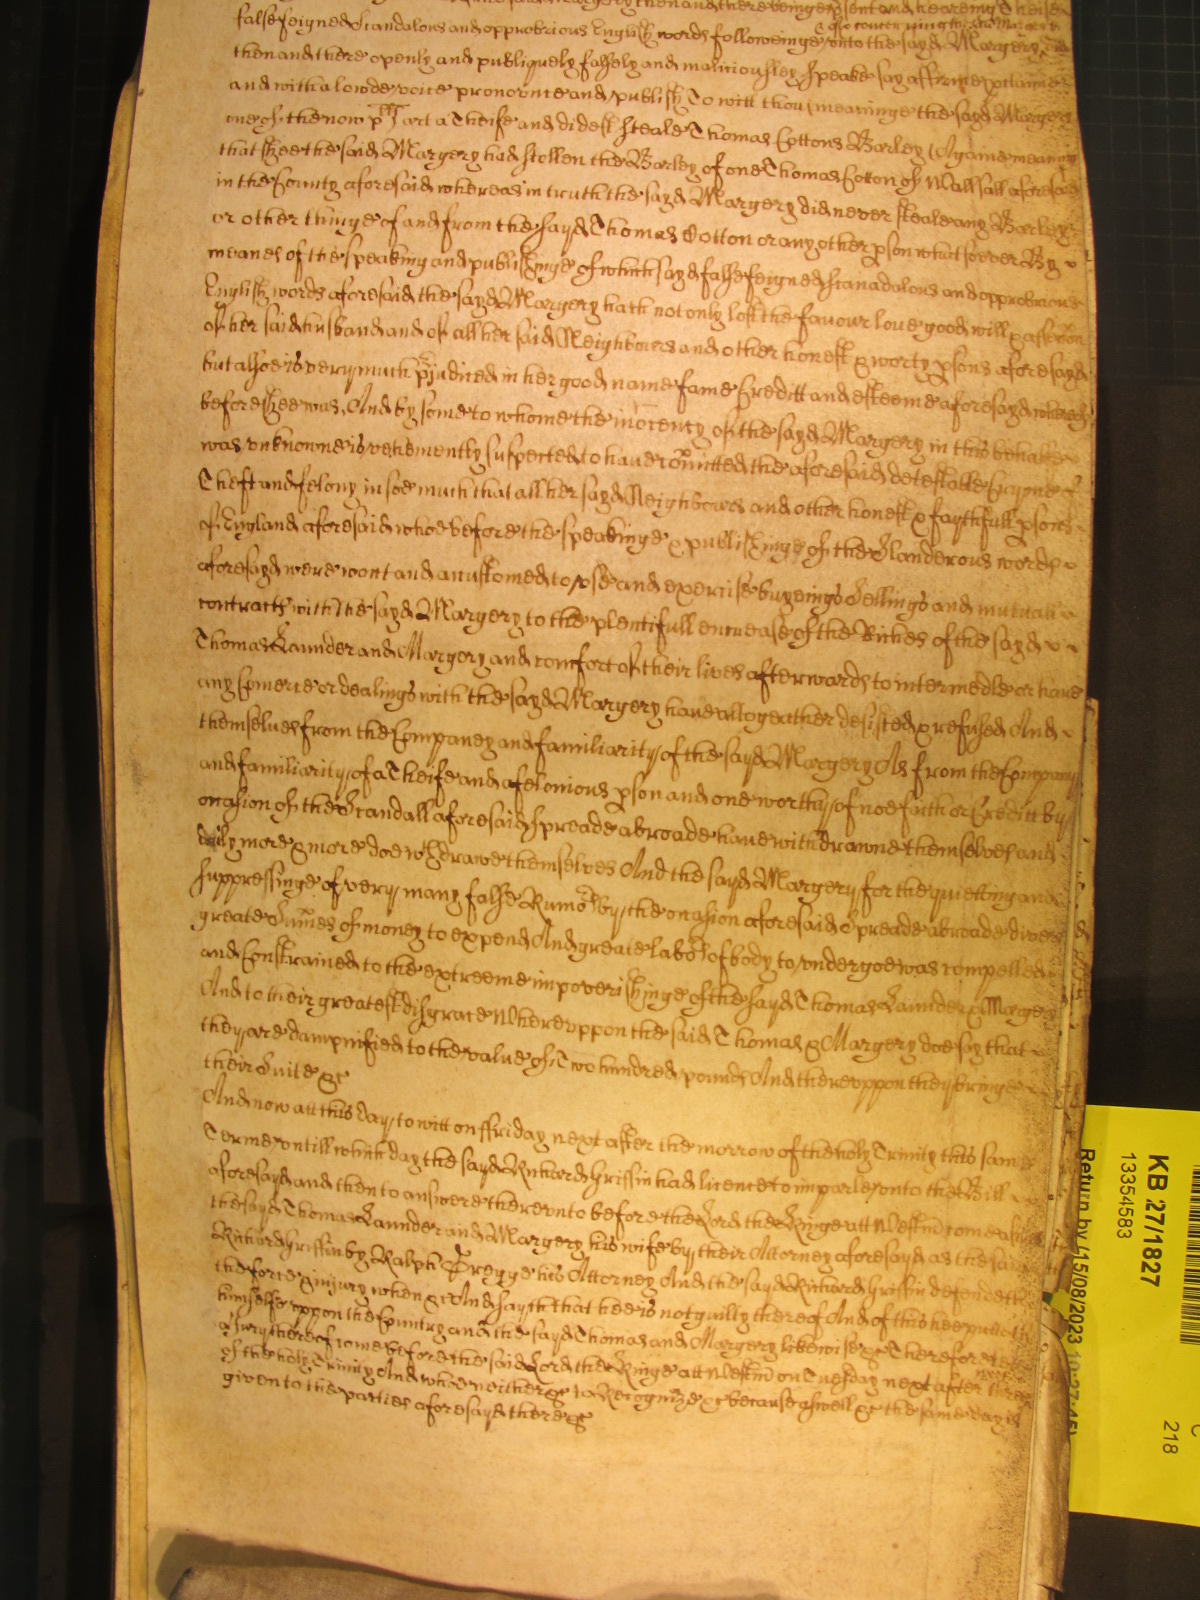 said Margery then and there beinge psent and heareing These
false feigned Scandalous and opprobrious English words followeinge vnto the sayd Margery and
& of & concerninge the said Margery
then and there openly and publiquely falsely and maliciously speake say affirme exclaime
and with a lowde voice pronounce and publish To witt thou (meaninge the sayd Margery
one of the now pts) art a Theife and didest steale Thomas Cottons Barley (Againe meaning
that shee the said Margery had stollen the Barley of one Thomas Cotton of Wallsall aforesaid
in the County aforesaid whereas in truth the sayd Margery did never steale any Barley
or other thinge of and from the sayd Thomas Cotton or any other pson whatsoever By
meanes of the speaking and publishinge of which sayd false feigned scanadalous and opprobrious
English words aforesaid the sayd Margery hath not only lost the favour love good will & affection
of her said husband and of all her said Neighbours and other honest & worty psons aforesayd
but alsoe is very much pjudiced in her good name fame Creditt and esteeme aforesayd wherein
before shee was, And by some to whome the inocency of the sayd Margery in this behalfe
was vnknowne is vehemently suspected to have comitted the aforesaid detestable Cryme of
Theft and felony in soe much that all her sayd Neighbours and other honest & faythfull psons
of England aforesaid whoe before the speakinge & publishinge of the Slanderous words
aforesayd were wont and accustomed to vse and exercise buyeings Sellings and mutuall
contracts with the sayd Margery to the plentifull encrease of the Riches of the sayd
Thomas Launder and Margery and comfort of their lives afterwards to intermedle or have
any Comerce or dealings with the sayd Margery have altogeather desisted & refused And
themselves from the Company and familiarity of the sayd Margery As from the Company
and familiarity of a Theife and a felonious pson and one worthy of noe faith or Creditt by
occasion of the Scandall aforesaid spreade abroade have withdrawne themselves and
daily more & more doe wthdrawe themselves And the sayd Margery for the quietting and
suppressinge of very many false Rumors by the occasion aforesaid Spreade abroade divers
greate Sumes of money to expend And greate labor of body to vndergoe was compelled
and Constrained to the extreeme impoverishinge of the sayd Thomas Launder & Margery
And to their greatest disgrace Whereuppon the said Thomas & Margery doe say that
they are dampnified to the value of Two hundred pounds And thereuppon they bringe
their Suite &c
And now att this day to witt on ffriday next after the morrow of the holy Trinity this same
Terme vntill which day the sayd Richard Griffin had licence to imparle vnto the Bill
aforesayd and then to answere therevnto before the Lord the Kinge att Westm come aswell
the sayd Thomas Launder and Margery his wife by their Attorney aforesayd as the said
Richard Griffin by Ralph Gregge his Attorney And the sayd Richard Griffin defendeth
the force & injury when &c And sayth that hee is not guilty thereof And of this hee putteth
himselfe vppon the Country and the sayd Thomas and Margery likewise &c Therefore let
a Jury thereof come before the said Lord the Kinge att Westm on Tuesday next after three
weekes
of the holy Trinity And whoe neither &c to Recognize &c because aswell &c the same day is
given to the parties aforesayd there &c
KB 27/1827
13354583
Return by (15/08/2023
218